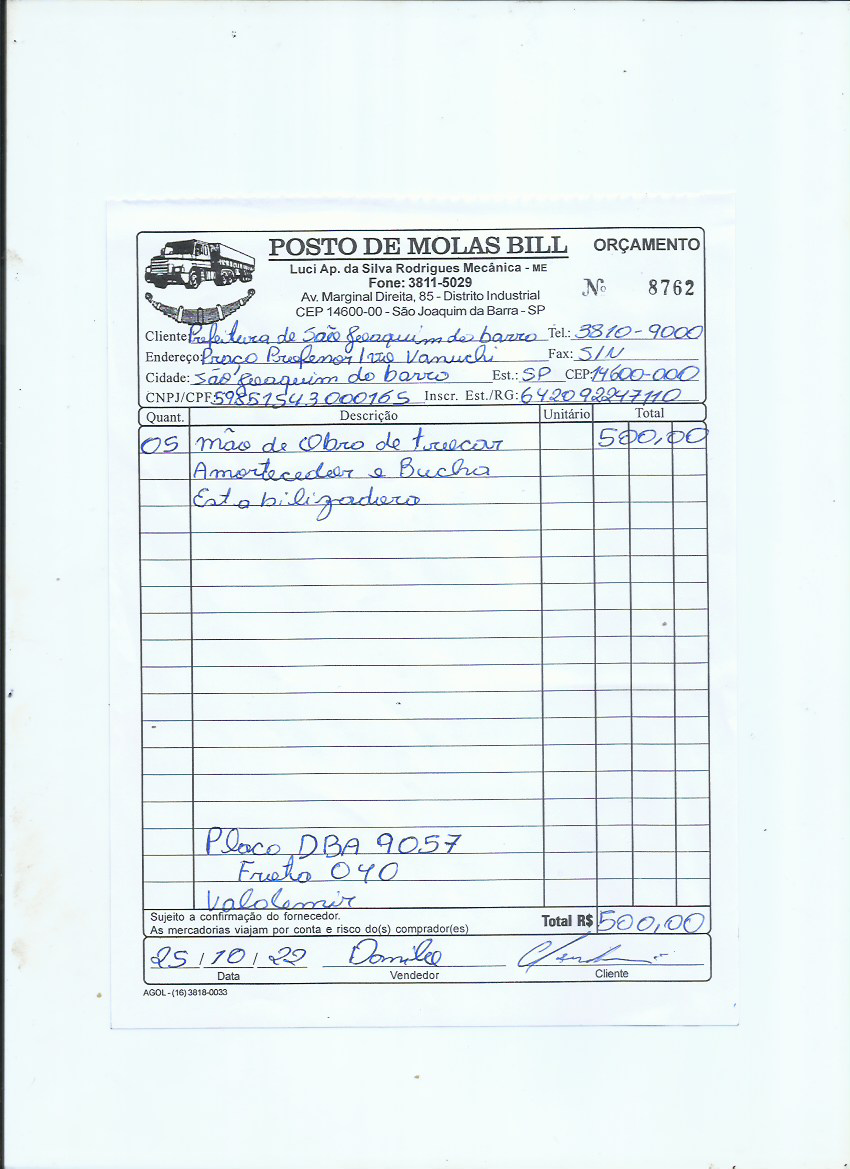 POSTO DE MOLAS BILL
ORÇAMENTO
Luci Ap. da Silva Rodrigues Mecânica - ME
Fone: 3811-5029
Av. Marginal Direita, 85 - Distrito Industrial
CEP 14600-00 - São Joaquim da Barra - SP
Nº 8762
Cliente Prefeitura de São Joaquim da barra Tel.: 3810-9000
Endereço Praça Professor Ivo Vanuchi Fax: S/N
Cidade: São Joaquim da barra Est.: SP CEP: 14600-000
CNPJ/CPF 59851543000165 Inscr. Est./RG: 642092247110
Quant. Descrição Unitário Total
05 mão de Obra de trocar 500,00
Amortecedor e Bucha
Estabilizadora
Placa DBA 9057
Frota 040
Valdemir
Sujeito a confirmação do fornecedor.
As mercadorias viajam por conta e risco do(s) comprador(es)
Total R$ 500,00
25/10/22 Danilo
Data Vendedor Cliente
AGOL - (16) 3818-0033